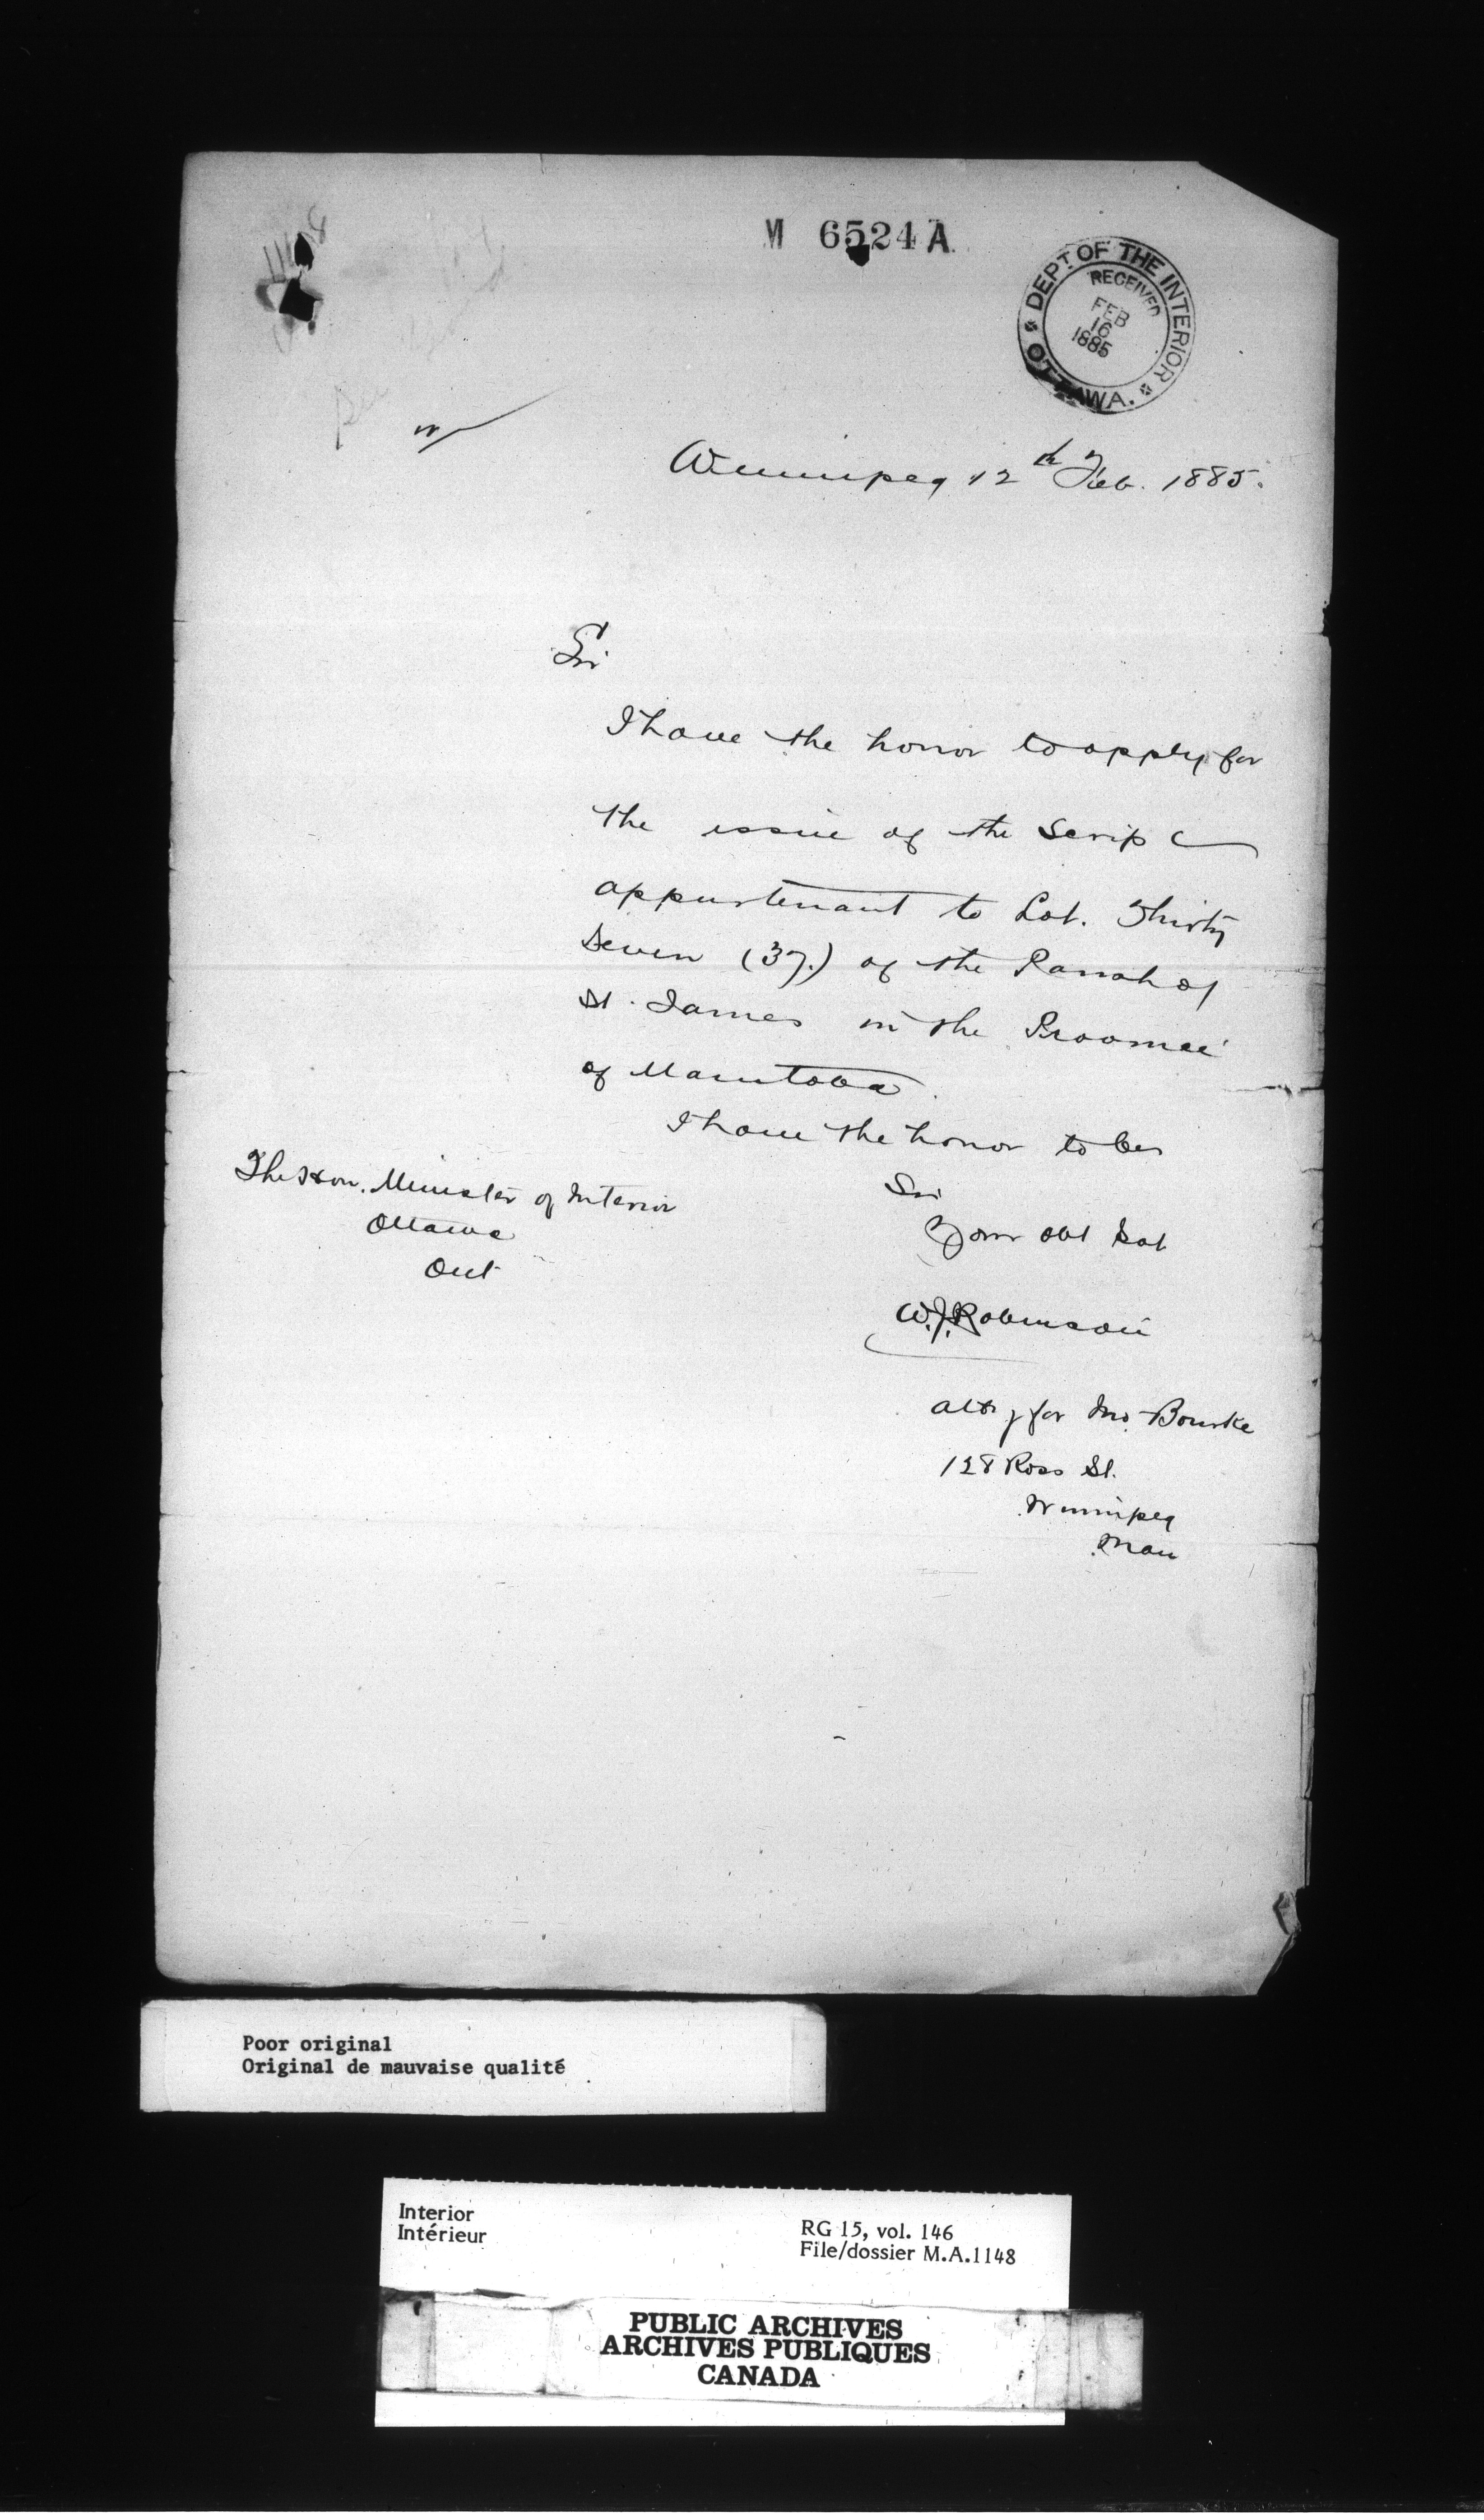 M 6524 A
DEPT. OF THE INTERIOR
RECEIVED
FEB
16
1885
OTTAWA.
Winnipeg 12th Feb. 1885.
Sir
I have the honor to apply for
the issue of the Scrip
appurtenant to Lot. Thirty
Seven (37.) of the Parish of
St. James in the Province
of Manitoba.
I have the honor to be
Sir
Your obt Svt
W.J. Robinson
atty for Jno. Bourke
128 Ross St.
Winnipeg
Man
The Hon. Minister of Interior
Ottawa
Ont
Poor original
Original de mauvaise qualité
Interior
Intérieur
RG 15, vol. 146
File/dossier M.A.1148
PUBLIC ARCHIVES
ARCHIVES PUBLIQUES
CANADA